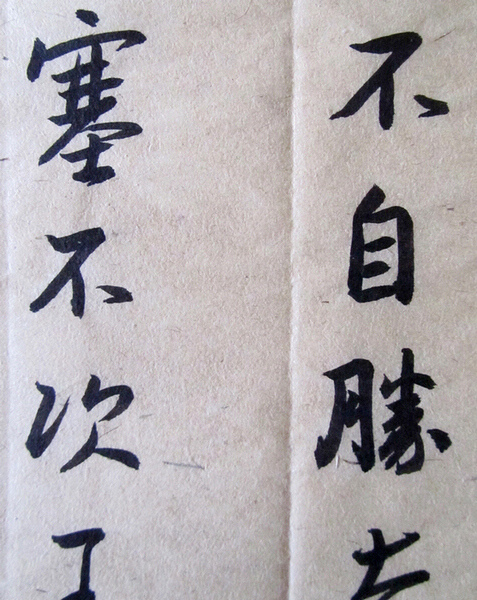 不自勝
塞不次